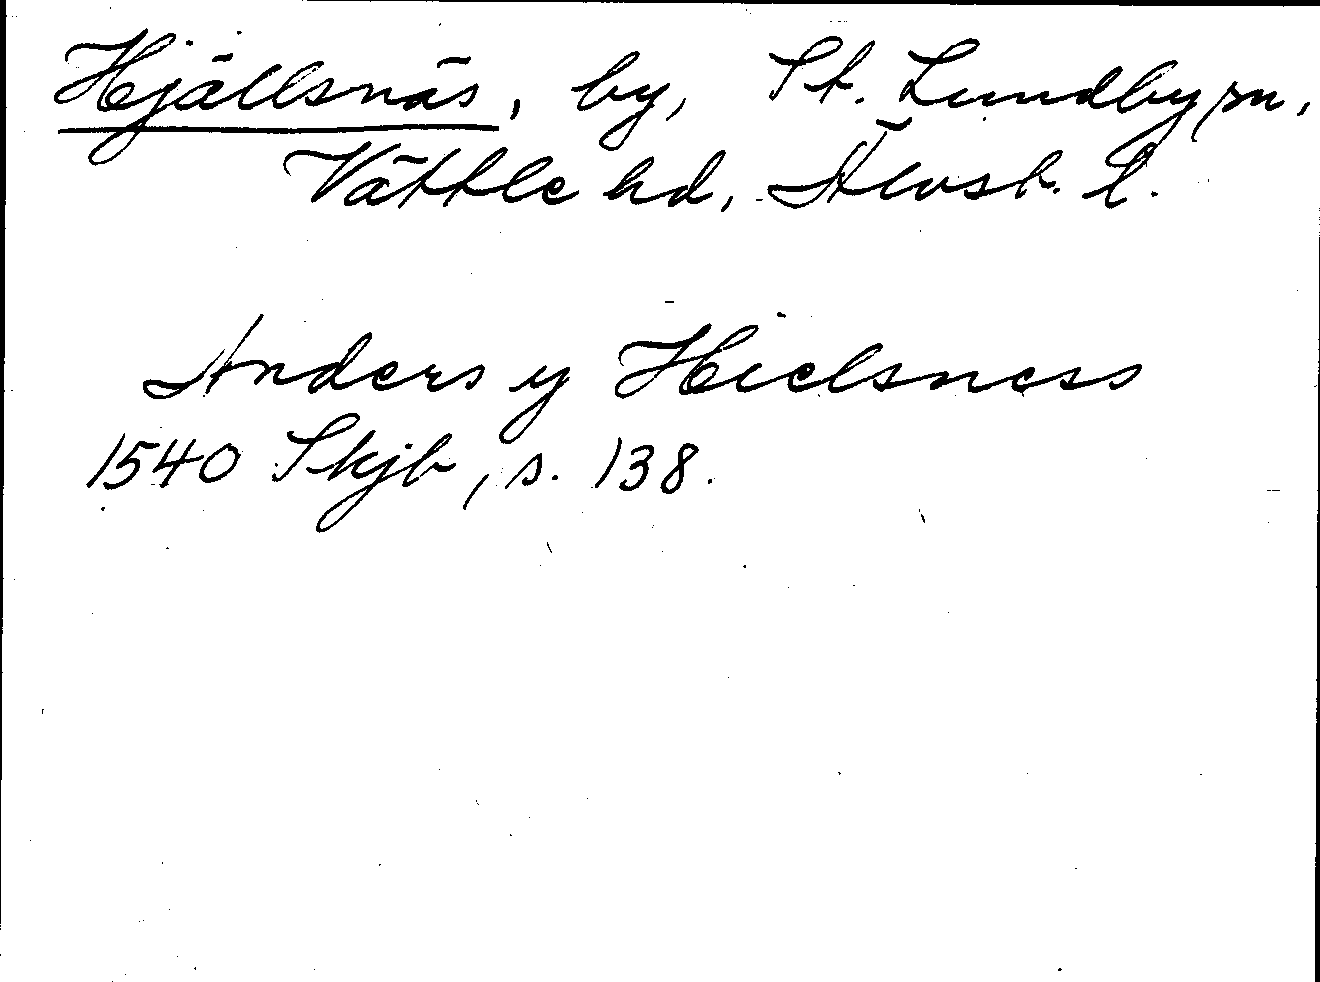 Hjällsnäs, by, St. Lundby sn,
Vättle hd, Älvsb. l.
Anders y Hielsness
1540 Skjb, s. 138.